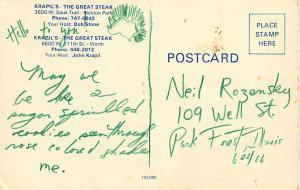 KRAPIL'S - THE GREAT STEAK
3650 W. Sauk Trail - Richton Park
Phone: 747-0842
Your Host: Bob Stone
KRAPIL'S - THE GREAT STEAK
6600 W. 111th St. - Worth
Phone: 448-2012
Your Host: John Krapil
Hello to you.
May we
be like 2
sugar sprinkled
cookies seen through
rose colored shade
me.
PLACE
STAMP
HERE
POSTCARD
Neil Rozansky
109 Well St.
Park Forest Illinois
60466